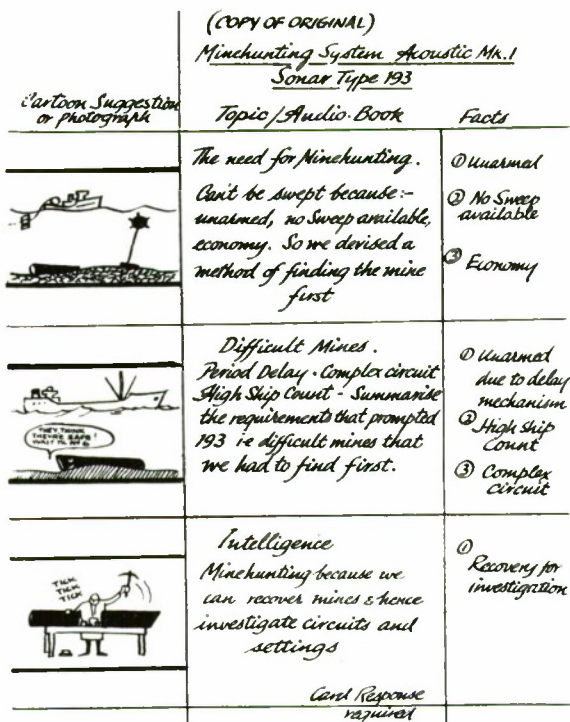 (COPY OF ORIGINAL)
Minehunting System Acoustic Mk.1
Sonar Type 193
Cartoon Suggestion
or photograph
Topic/Audio-Book
Facts
The need for Minehunting.
Can't be swept because:-
unarmed, no Sweep available,
economy. So we devised a
method of finding the mine
first
① Unarmed
② No Sweep
available
③ Economy
THEY THINK
THEY'RE SAFE!
Difficult Mines.
Period Delay - Complex circuit
High Ship Count - Summarise
the requirements that prompted
193 ie difficult mines that
we had to find first.
① Unarmed
due to delay
mechanism
② High ship
count
③ Complex
circuit
TICK
TICK
TICK
Intelligence
Minehunting because we
can recover mines & hence
investigate circuits and
settings
① Recovery for
investigation
Card Response
required